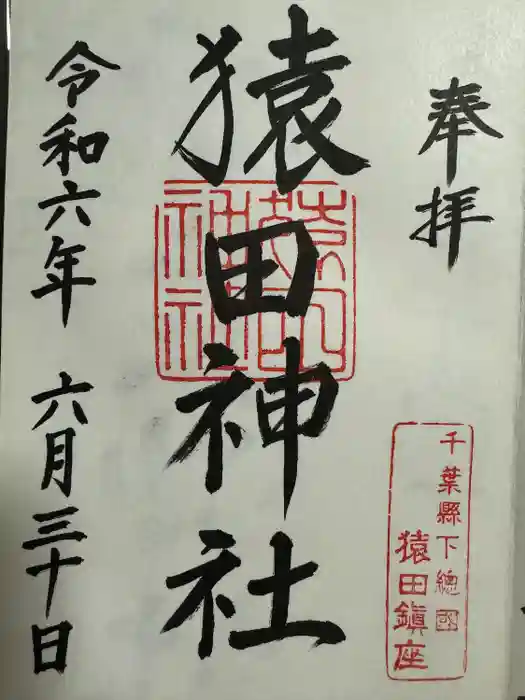 奉拝
千葉縣下總國
猿田鎭座
猿田神社
令和六年 六月三十日